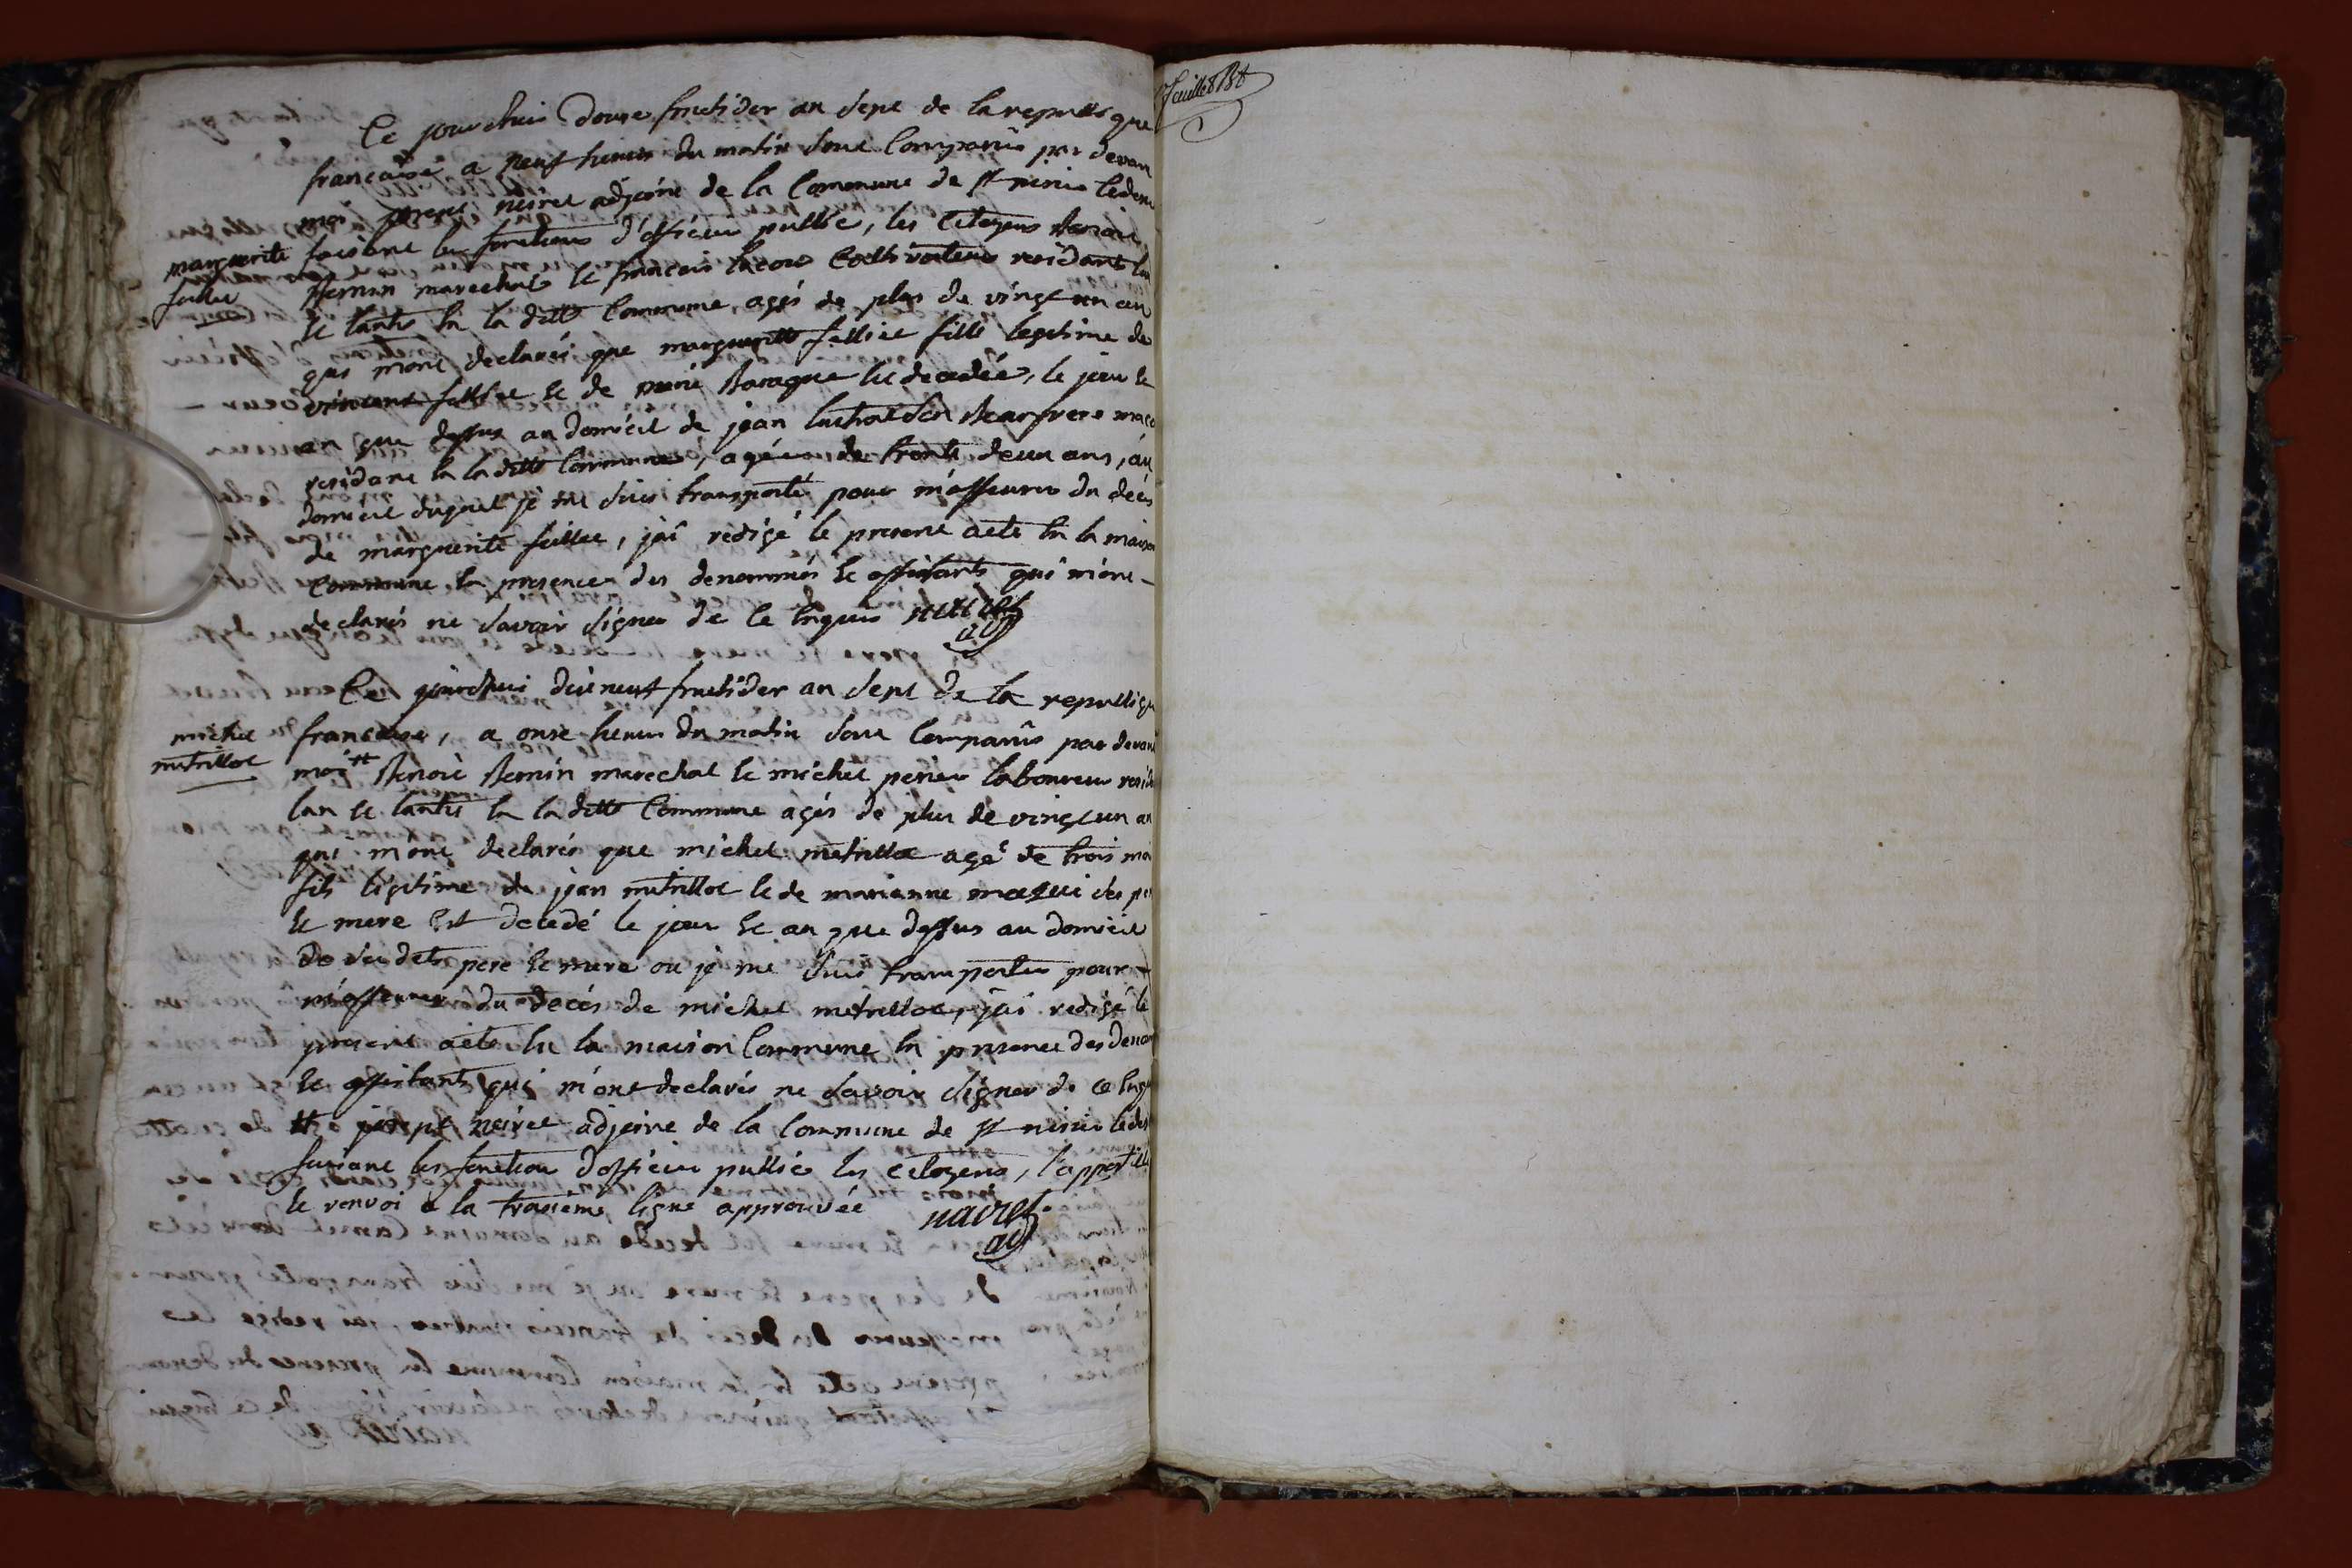 Ce jourdhui douze fructidor an sept de la republique
francaise a neuf heures du matin sont Comparûs par devan
moi neiret adjoint de la Commune de st nisier
marguerite
felliet
faisant les fonctions d'officier public, les Citoyens Benoit
Bernin marechal et francois lacour Cultivateur residants l'un
et l'autre en la ditte Commune, agés de plus de vingt un an
qui m'ont declarés que marguerite felliet fille legitime de
vincent felliet et de marie Baraque est decedée, le jour et
an que dessus au domicil de jean son Beaufrere
residant en la ditte Commune, agée de trente deux ans, au
domicil duquel je me suis transporté pour m'assurer du decés
de marguerite felliet, j'ai redigé le present acte en la maison
Commune en presence des denommés et assistants qui m'ont
declarés ne savoir signer de ce Enquis neiret
adj
Ce jourdhui dixneuf fructidor an sept de la republiqu
michel
metrillot
francaise, a onze heures du matin sont Comparûs par devant
moi # Benoit Bernin marechal et michel perier laboureur resid
lun et lautre en la ditte Commune agés de plus de vingt un an
qui m'ont declarés que michel metrillot agé de trois moi
fils legitime de jean metrillot et de marianne ses pe
et mere Est decedé le jour et an que dessus au domicil
de ses dits pere et mere ou je me suis transporter pour
m'assurer du decés de michel metrillot, j'ai redigé le
present acte en la maison Commune en presence des denom
et assistants qui m'ont declarés ne savoir signer de ce Enqu
# joseph neiret adjoint de la Commune de st nisier
faisant les fonction d'officier public les Citoyens, l'appostille
et renvoi a la troisieme ligne approuvée
nairet
adj